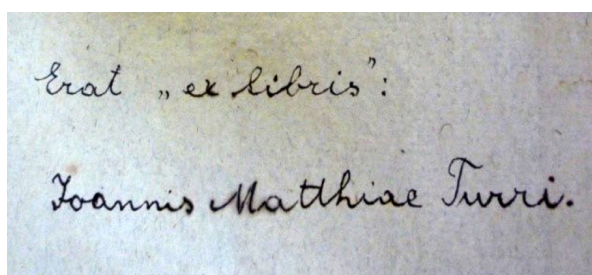 Erat „ex libris”:
Joannis Matthiae Turri.